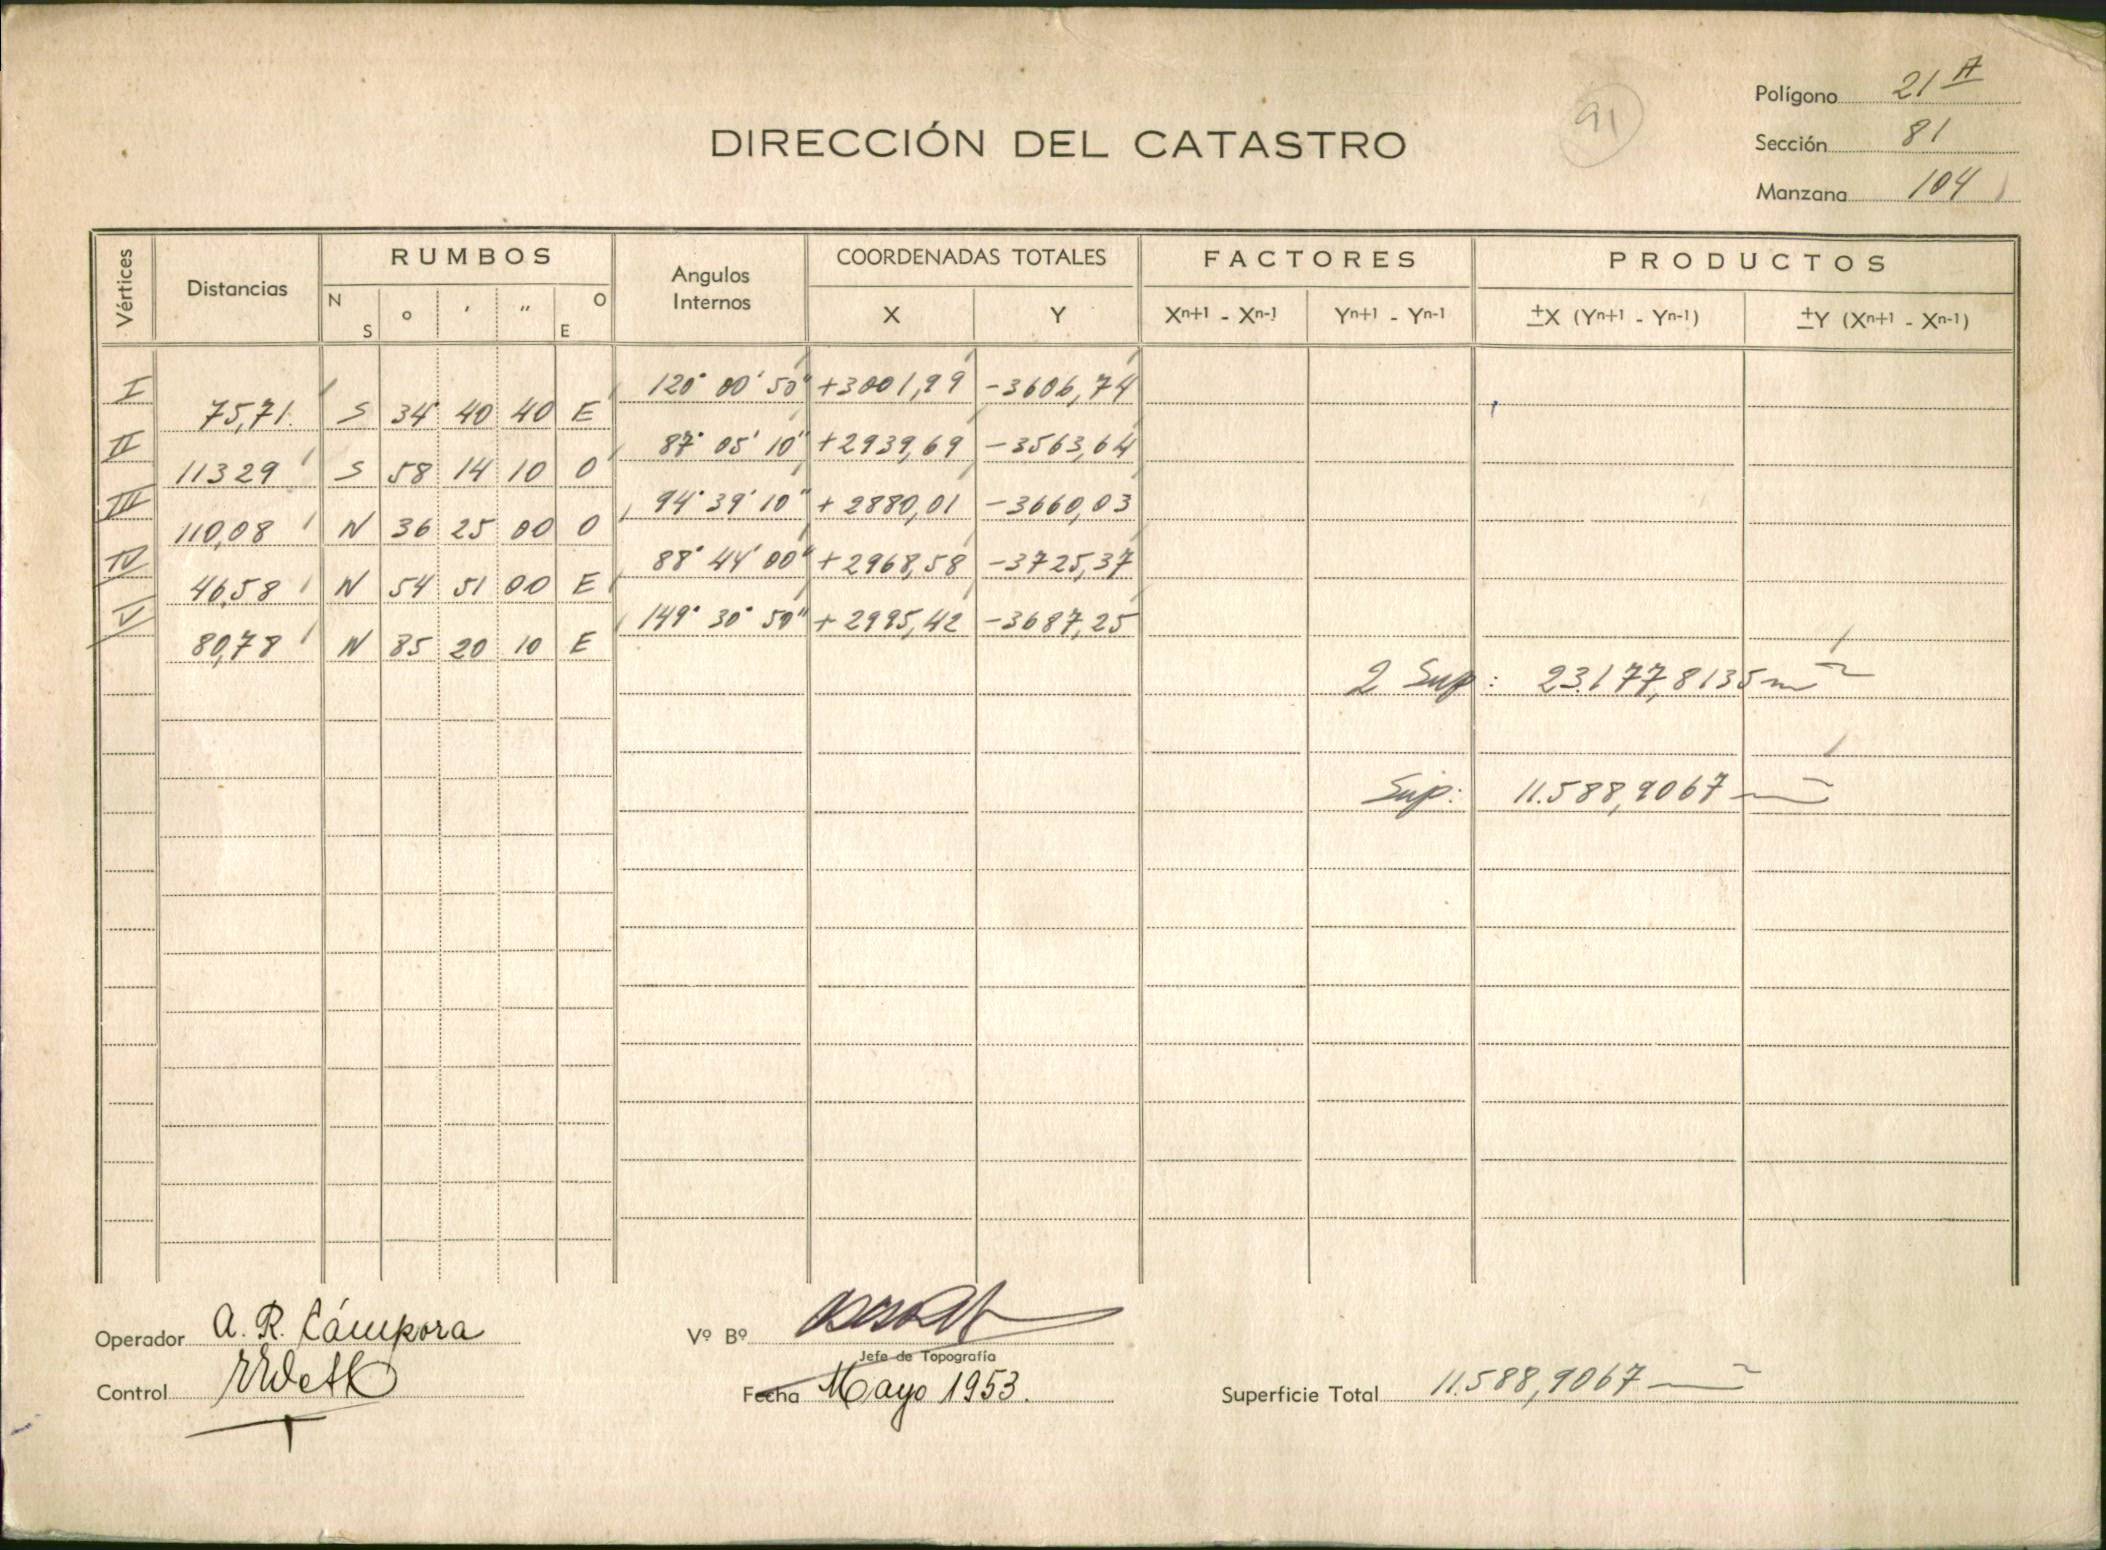 Polígono 21 A
91
Sección 81
DIRECCIÓN DEL CATASTRO
Manzana 104
Vértices Distancias RUMBOS N S ° ′ ″ O E Angulos Internos COORDENADAS TOTALES X Y FACTORES Xn+1 - Xn-1 Yn+1 - Yn-1 PRODUCTOS ±X (Yn+1 - Yn-1) ±Y (Xn+1 - Xn-1)
I 120° 00' 50" +3001,99 -3606,74
75,71 S 34 40 40 E
II 87° 05' 10" +2939,69 -3563,64
11329 S 58 14 10 O
III 94° 39' 10" +2880,01 -3660,03
110,08 N 36 25 00 O
IV 88° 44' 00" +2968,58 -3725,37
46,58 N 54 51 00 E
V 149° 30' 50" +2995,42 -3687,25
80,78 N 85 20 10 E
2 Sup: 23.177,8135 m²
Sup: 11.588,9067 m²
Operador A. R. Cámpora
Vº Bº
Jefe de Topografía
Control
Fecha Mayo 1953.
Superficie Total 11.588,9067 m²